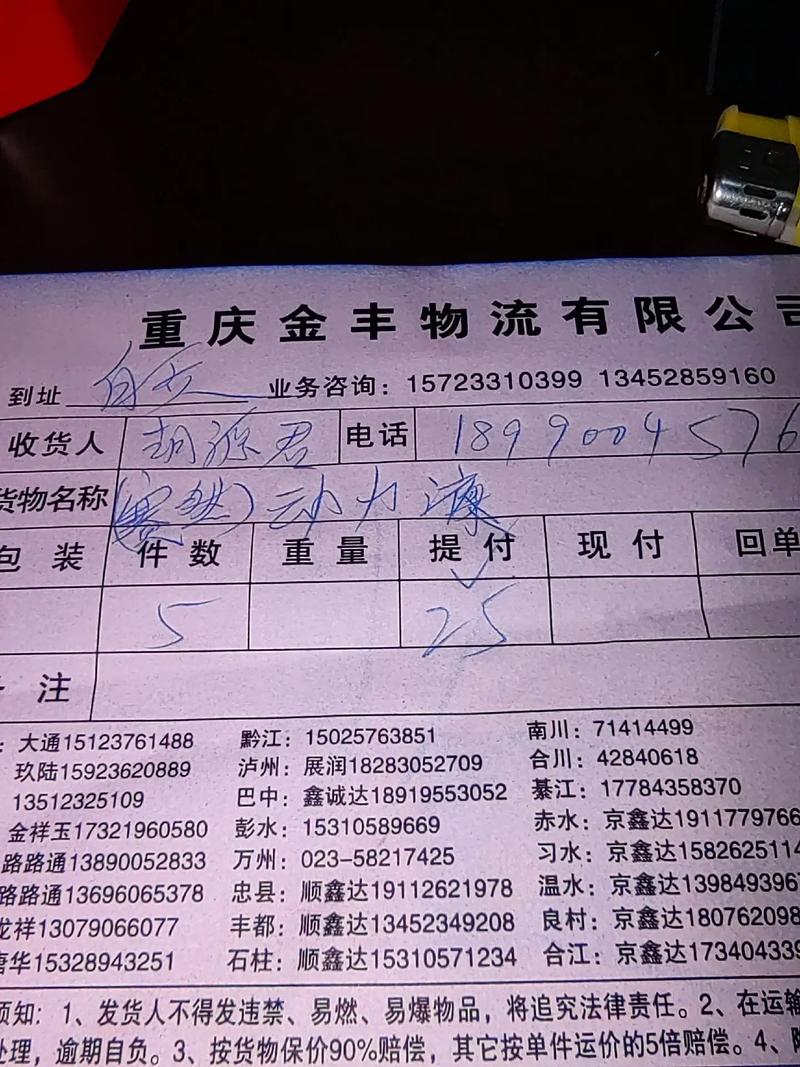 重庆金丰物流有限公司
到址 业务咨询：15723310399 13452859160
收货人 胡源君 电话 1899004576
货物名称 动力
包装 件数 重量 提付 现付 回单
5 25
备注
：大通15123761488 黔江：15025763851 南川：71414499
玖陆15923620889 泸州：展润18283052709 合川：42840618
13512325109 巴中：鑫诚达18919553052 綦江：17784358370
金祥玉17321960580 彭水：15310589669 赤水：京鑫达1911779766
路路通13890052833 万州：023-58217425 习水：京鑫达1582625114
路路通13696065378 忠县：顺鑫达19112621978 温水：京鑫达1398493967
龙祥13079066077 丰都：顺鑫达13452349208 良村：京鑫达180762098
唐华15328943251 石柱：顺鑫达15310571234 合江：京鑫达173404339
须知：1、发货人不得发违禁、易燃、易爆物品，将追究法律责任。2、在运输
处理，逾期自负。3、按货物保价90%赔偿，其它按单件运价的5倍赔偿。4、